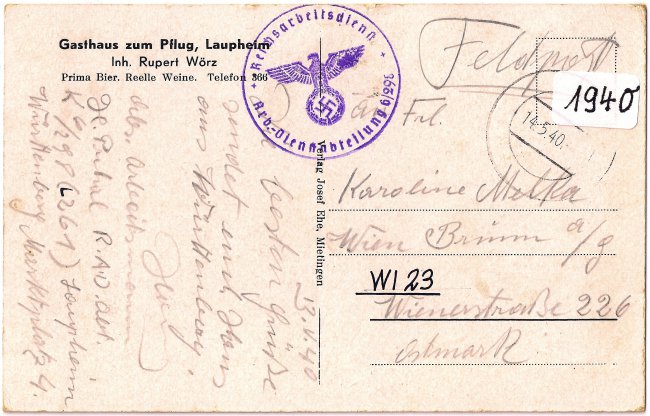 Gasthaus zum Pflug, Laupheim
Inh. Rupert Wörz
Prima Bier. Reelle Weine. Telefon 366
Reichsarbeitsdienst
Arb.-Dienstabteilung 9/266
Feldpost
1940
14.5.40.
An Frl.
Karoline Melka
Wien Brunn a/g
WI 23
Wienerstraße 226
Ostmark
Verlag Josef Ehe, Mietingen
13.V.40
Die besten Grüße
sendet euch Hans
aus Württemberg.
Abs. Arbeitsmann
R.A.D. Abt.
K 9/298 (L 261) Laupheim
Württemberg Marktplatz 4.